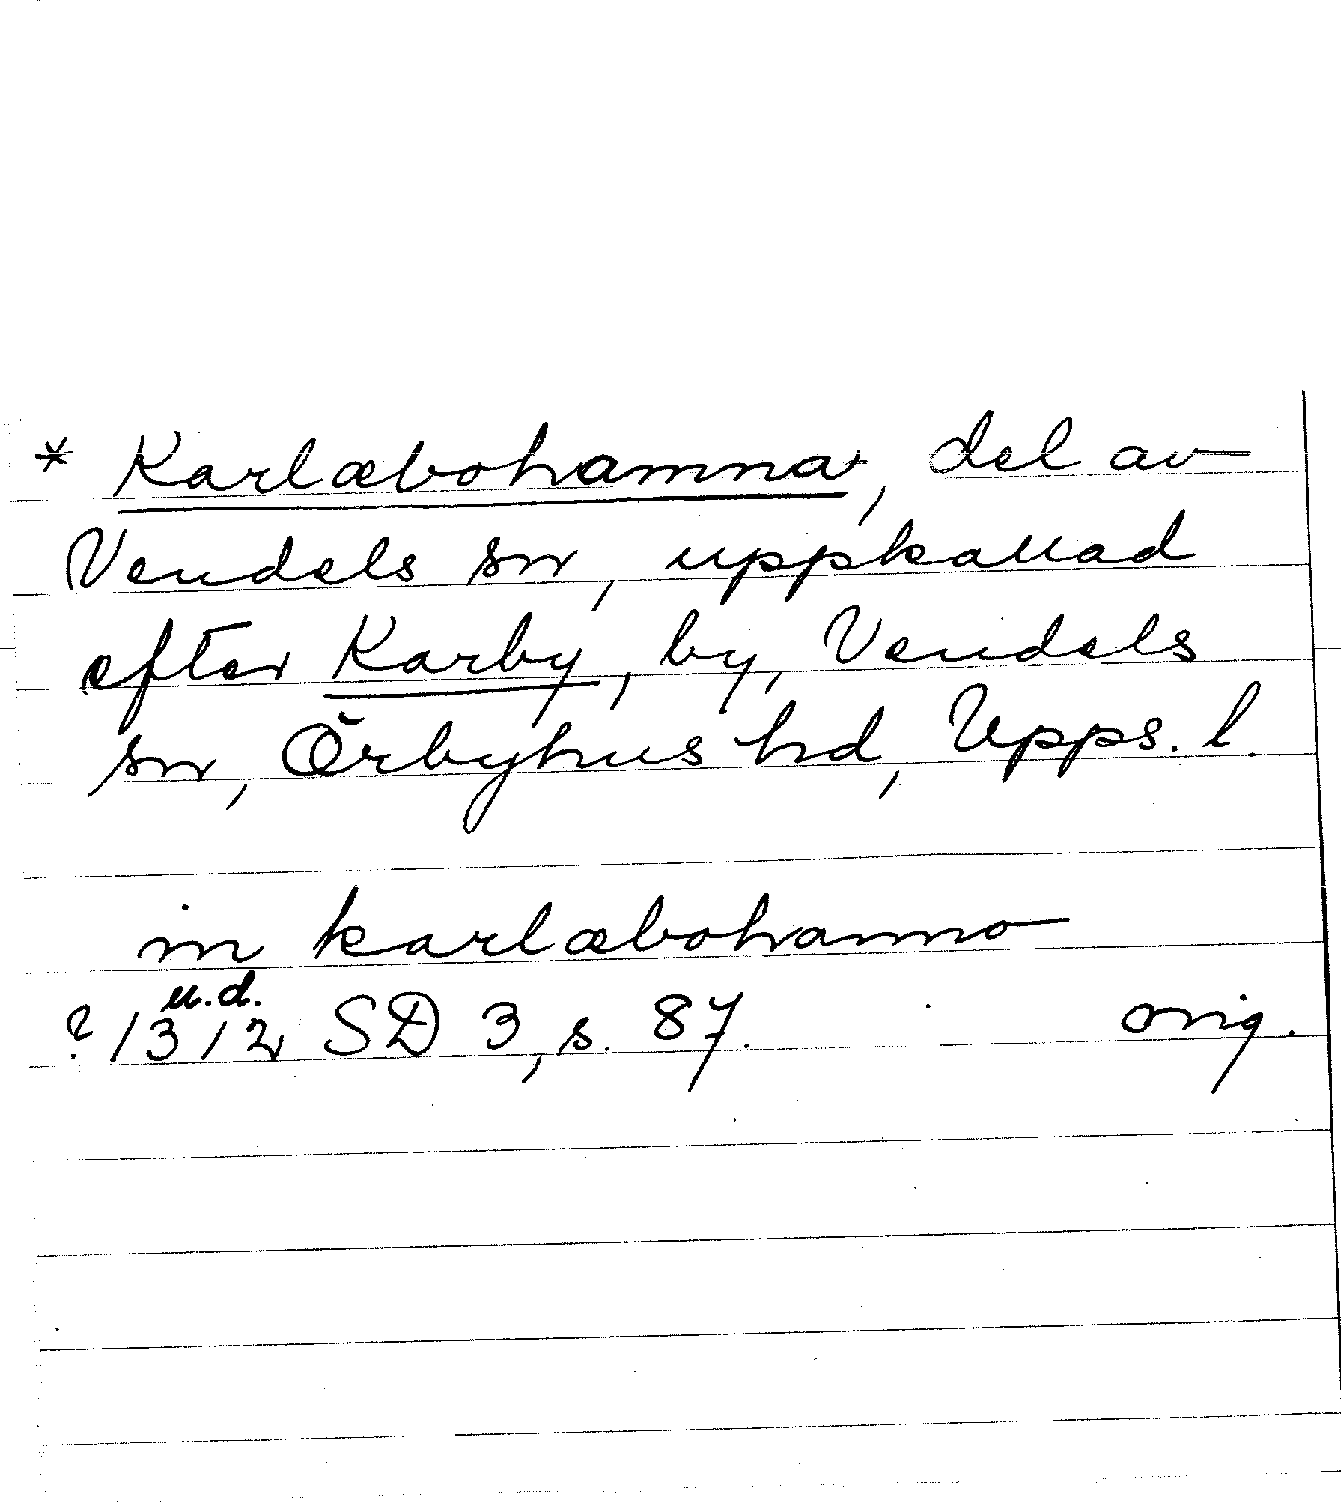 * Karlæbohamna, del av
Vendels sn, uppkallad
efter Karby, by, Vendels
sn, Örbyhus hd, Upps. l.
in karlæbohamno
u.d.
? 1312 SD 3, s. 87. orig.